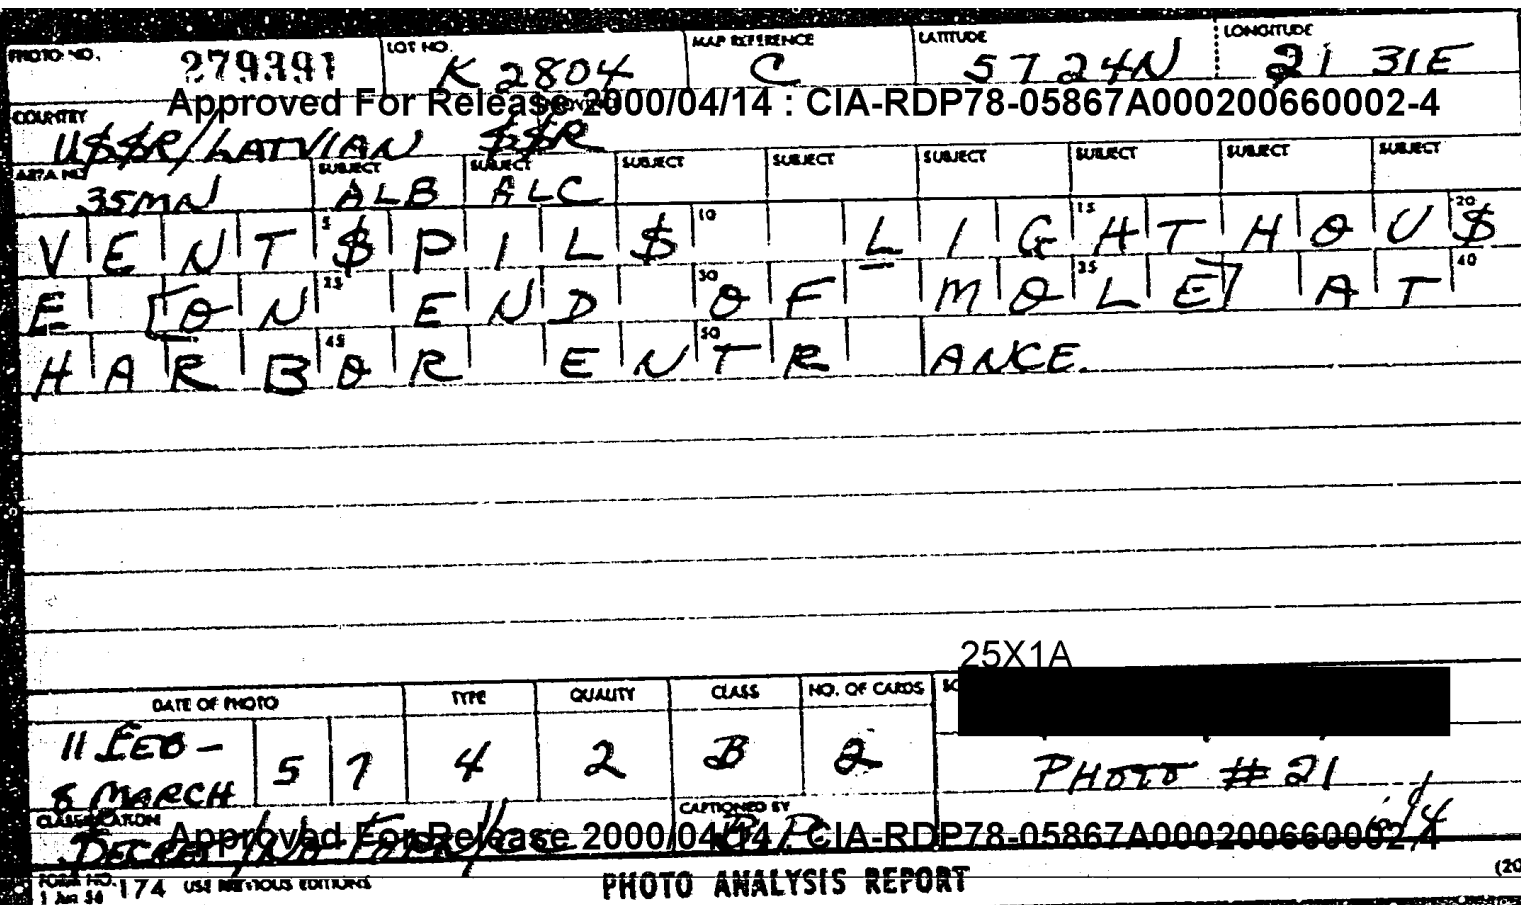 PHOTO NO. 279391 LOT NO. K 2804 MAP REFERENCE C LATITUDE 57 24N LONGITUDE 21 31E
Approved For Release 2000/04/14 : CIA-RDP78-05867A000200660002-4
COUNTRY U$$R/LATVIAN $$R
AREA NO 35MN SUBJECT ALB SUBJECT ALC SUBJECT SUBJECT SUBJECT SUBJECT SUBJECT SUBJECT
VENT$PIL$ LIGHTHOU$ 5 10 15 20
E [ON END OF MOLE] AT 25 30 35 40
HARBOR ENTRANCE. 45 50
25X1A
DATE OF PHOTO TYPE QUALITY CLASS NO. OF CARDS
11 FEB - 8 MARCH 57 4 2 B 2
PHOTO # 21
CLASSIFICATION CAPTIONED BY
Approved For Release 2000/04/14 : CIA-RDP78-05867A000200660002-4
FORM NO. 174 USE PREVIOUS EDITIONS (20
PHOTO ANALYSIS REPORT